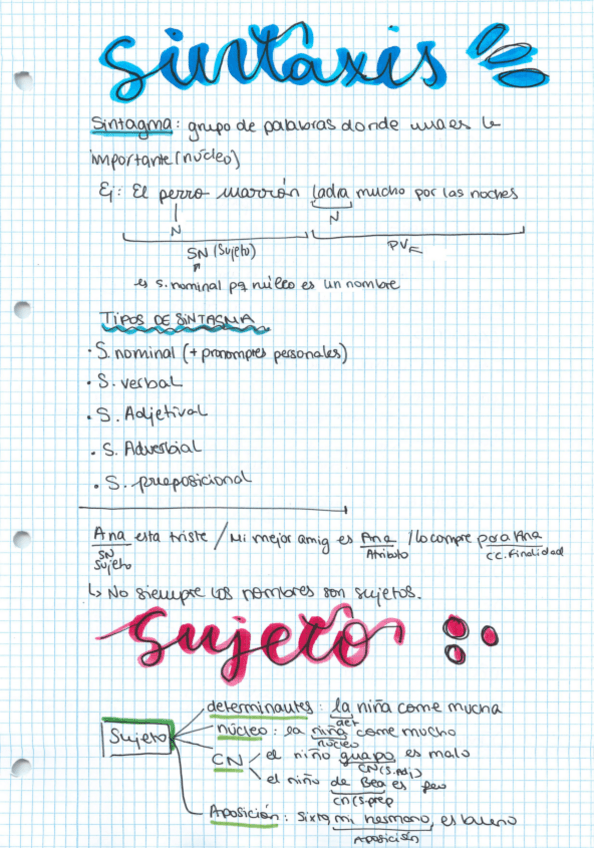 Sintaxis
Sintagma: grupo de palabras donde una es la
importante (núcleo)
Ej: El perro marrón ladra mucho por las noches
N
N
SN (Sujeto)
PV
es s. nominal pq núlco es un nombre
TIPOS DE SINTAGMA
· S. nominal (+ pronompres personales)
· S. verbal
· S. Adjetival
· S. Adverbial
· S. preposicional
Ana esta triste / Mi mejor amig es Ana / lo compre para Ana
SN
Sujeto
Atributo
CC. Finalidad
↳ No siempre los nombres son sujetos.
Sujeto
Sujeto
determinantes: la niña come mucha
det
núcleo: la niña come mucho
núcleo
CN
el niño guapo es malo
CN (S.Adj)
el niño de Bea es feo
CN (S.prep
Aposición: sixto, mi hermano, es bueno
Aposición